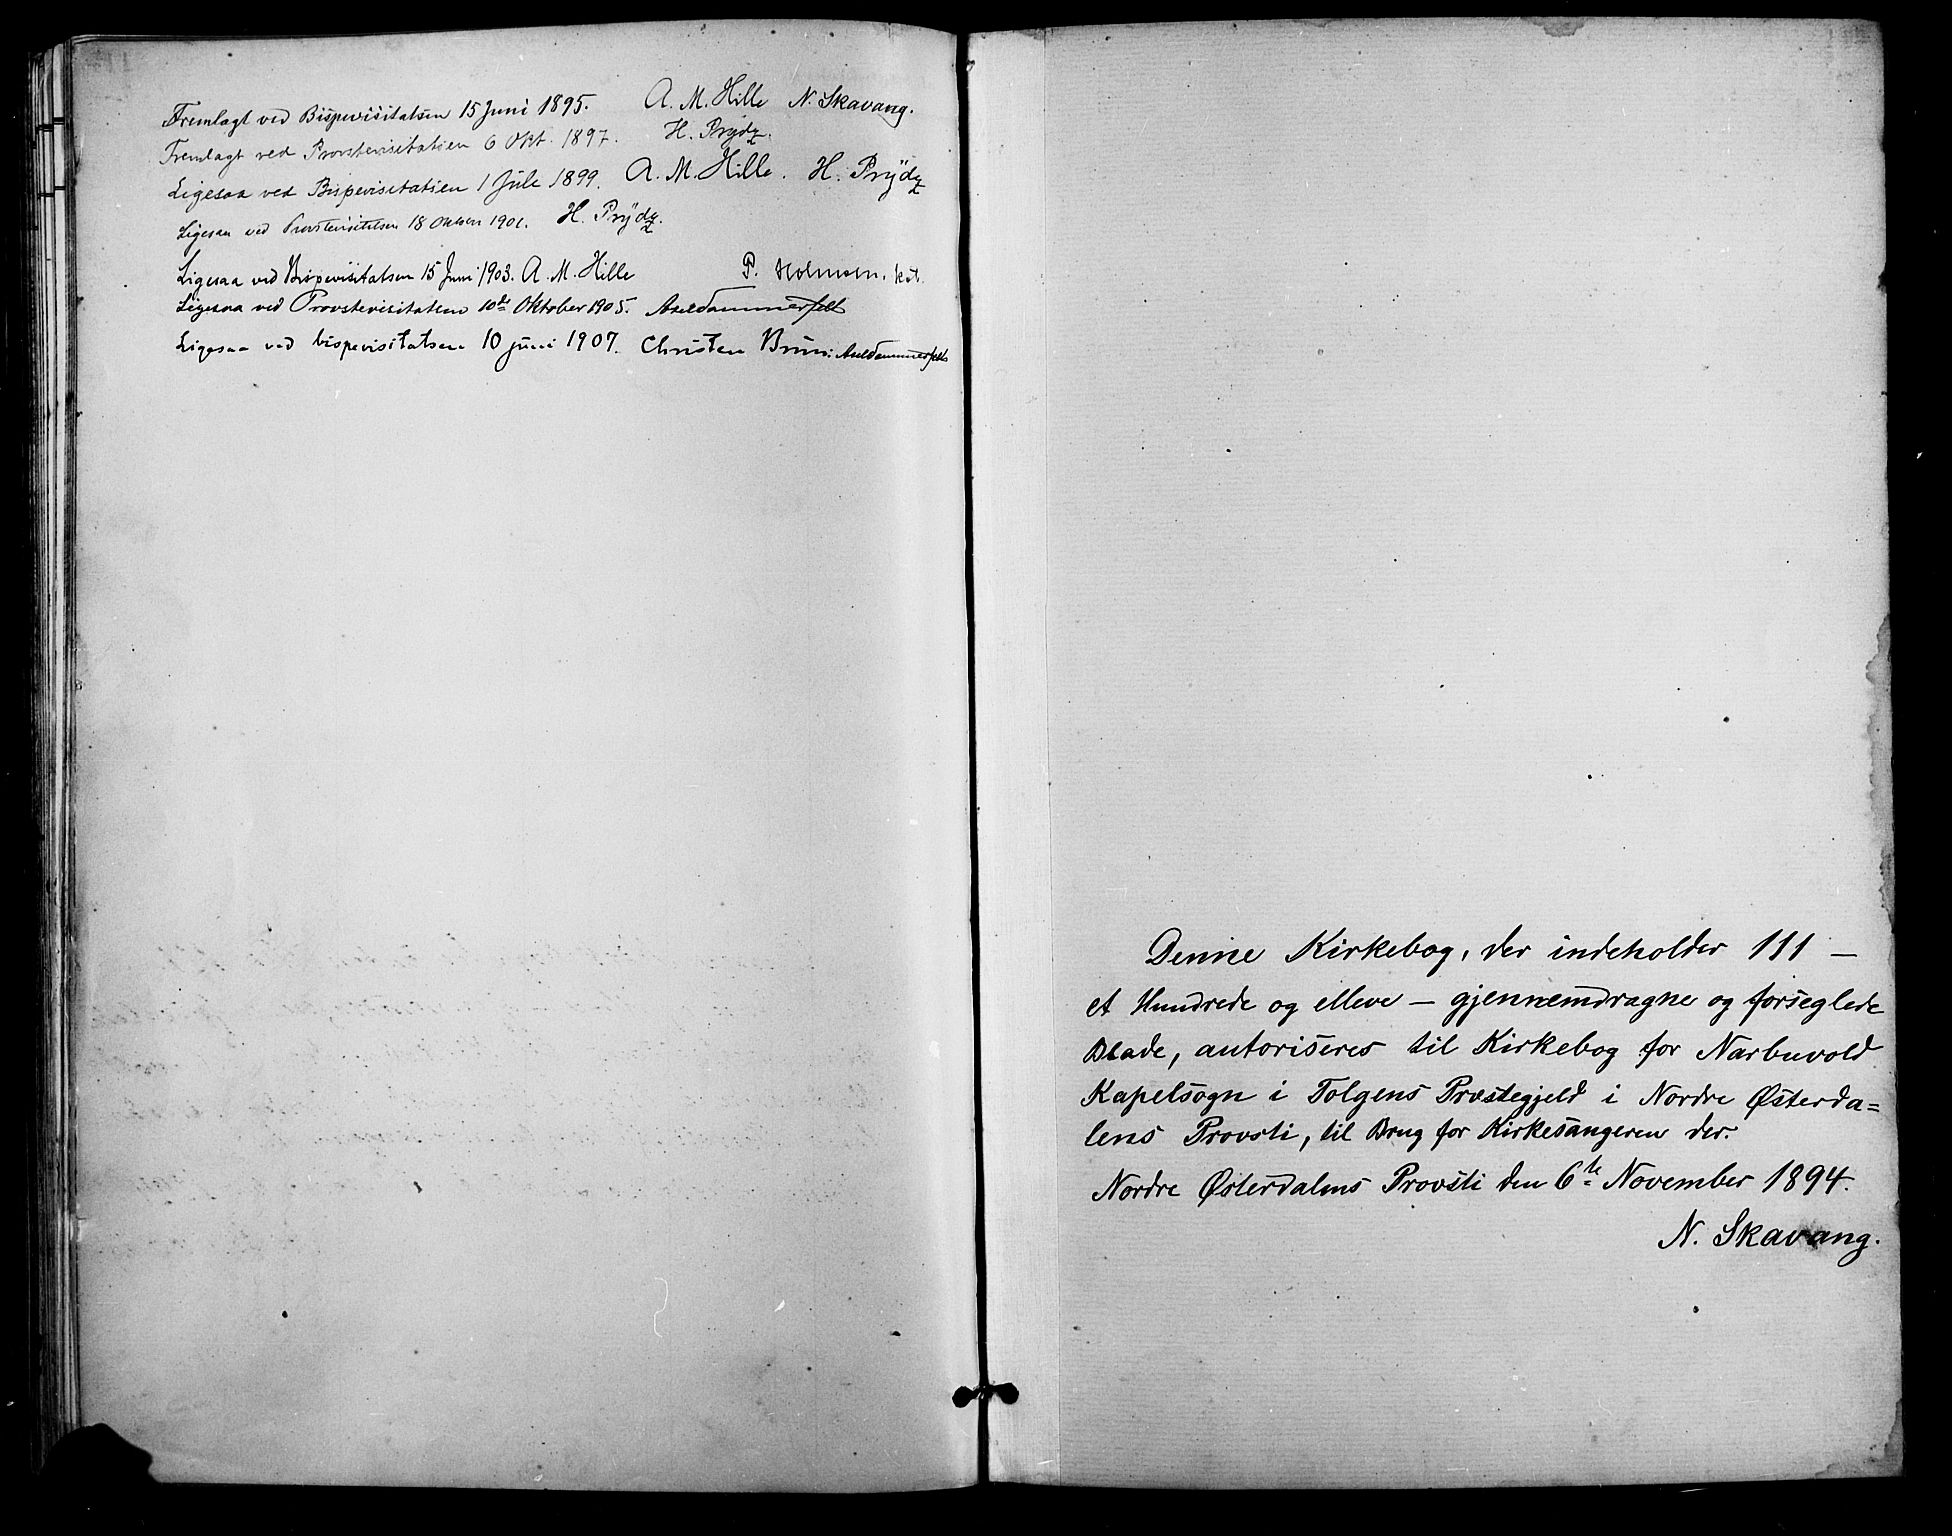 Fremlagt ved Bispevisitatsen 15 Juni 1895. A. M. Hille N. Skavang.
Fremlagt ved Provstevisitatien 6 Okt. 1897. H. Prÿdz.
Ligesaa ved Bispevisitatien 1 Jule 1899. A. M. Hille. H. Prÿdz
Ligesaa ved Provstevisitatsen 18 1901. H. Prÿdz.
Ligesaa ved Bispevisitatsen 15 Juni 1903. A. M. Hille P. Holmsen, kst.
Ligesaa ved Provstevisitatsen 10de Oktober 1905.
Ligesaa ved bispevisitatsen 10 juni 1907. Christen Brun.
Denne Kirkebog, der indeholder 111 —
et Hundrede og elleve — gjennemdragne og forseglede
Blade, autoriseres til Kirkebog for Narbuvold
Kapelsogn i Tolgens Præstegjeld i Nordre Østerda=
lens Provsti, til Brug for Kirkesangeren der.
Nordre Østerdalens Provsti den 6te November 1894.
N. Skavang.